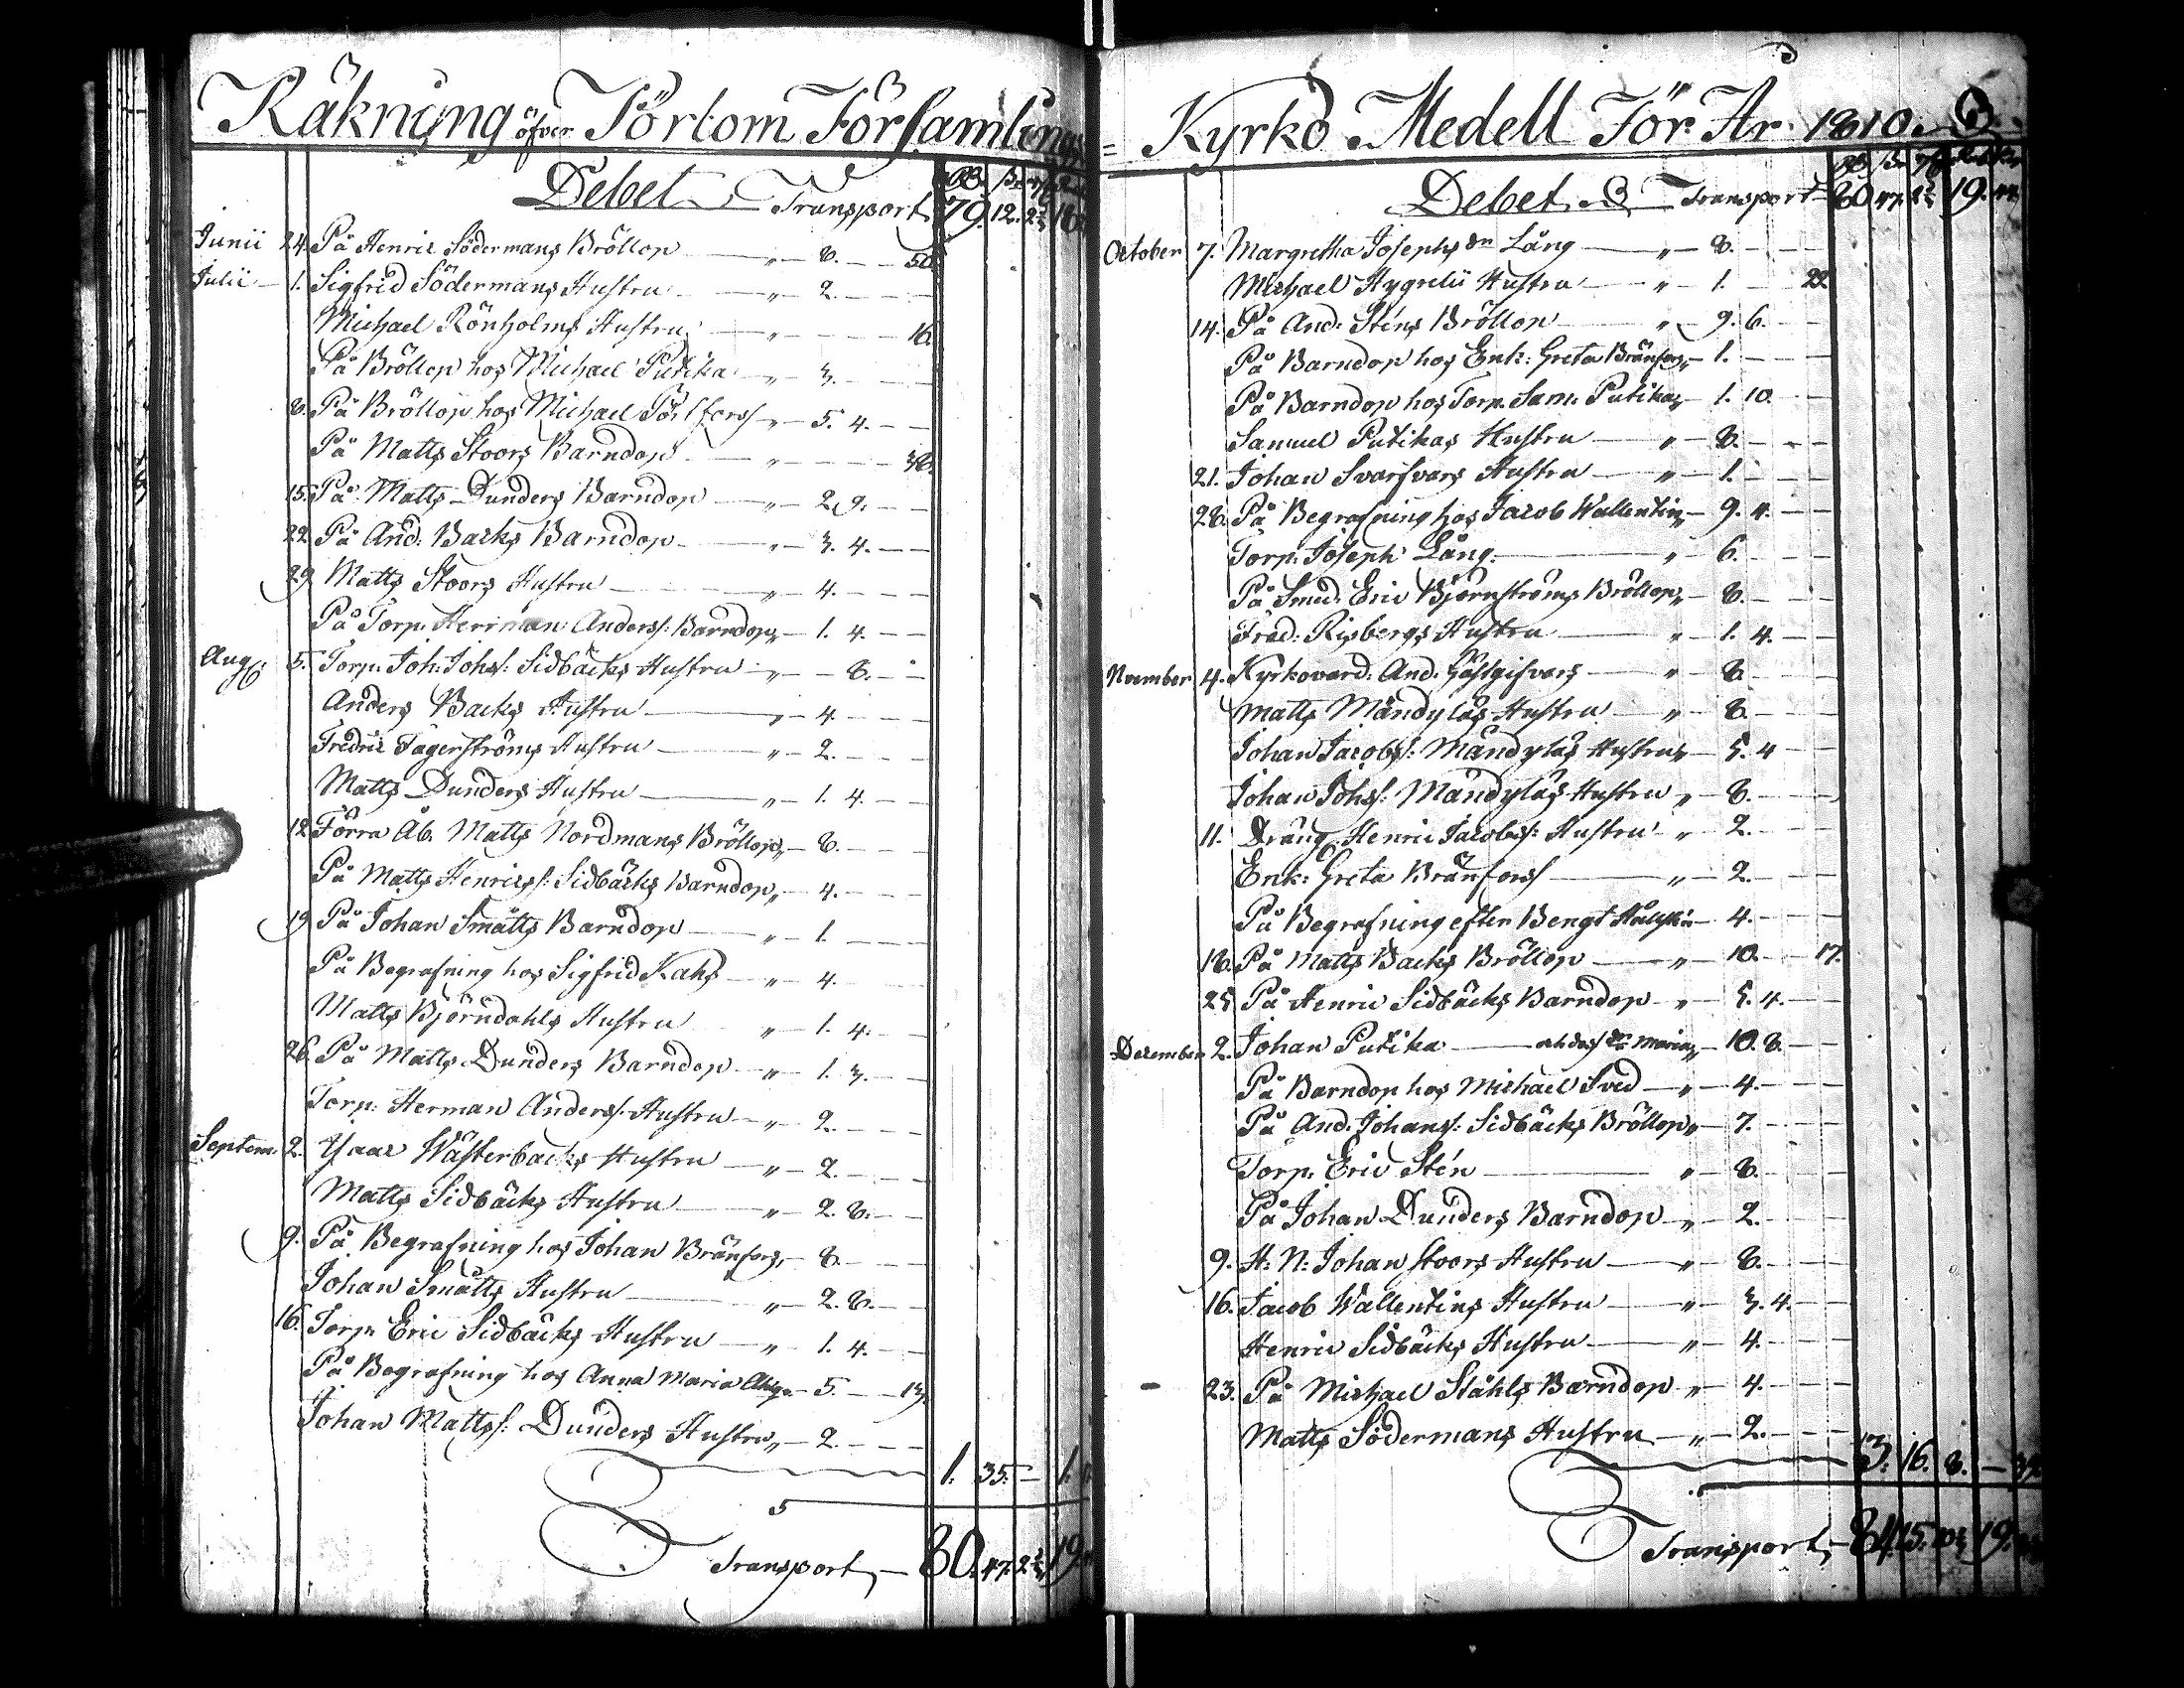 Räkning öfver Pörtom Församlings
Debet Transport 79. 12. 2 2/3 18.
Junii 24. På Henric Södermans Bröllop „ 8. 50.
Julii 1. Sigfrid Södermans Hustru „ 2.
Michael Rönholms Hustru „ 16.
På Bröllop hos Michael Putika „ 3.
8. På Bröllop hos Michael Pörtfors „ 5. 4.
På Matts Stoors Barndop „ 38.
15. På Matts Dunders Barndop „ 2. 9.
22. På And: Backs Barndop „ 3. 4.
29. Matts Stoors Hustru „ 4.
På Torp. Herman Anderss: Barndop „ 1. 4.
Aug. 5. Torp. Joh: Johss: Sidbäcks Hustru „ 8.
Anders Backs Hustru „ 4.
Fredric Fagerströms Hustru „ 2.
Matts Dunders Hustru „ 1. 4.
12. Förra Åb. Matts Nordmans Bröllop „ 8.
På Matts Henricss: Sidbäcks Barndop „ 4.
19. På Johan Smätts Barndop „ 1.
På Begrafning hos Sigfrid Kahs „ 4.
Matts Björndahls Hustru „ 1. 4.
26. På Matts Dunders Barndop „ 1. 3.
Torp. Herman Anderss. Hustru „ 2.
Septem. 2. Isaac Wästerbacks Hustru „ 2.
Matts Sidbäcks Hustru „ 2. 8.
9. På Begrafning hos Johan Bränfors „ 8.
Johan Smätts Hustru „ 2. 8.
16. Torp. Eric Sidbäcks Hustru „ 1. 4.
På Begrafning hos Anna Maria 5. 13.
Johan Mattss: Dunders Hustru „ 2.
1. 35. 1.
Transport 80. 47. 2 2/3 19.
Kyrko Medell För År 1810.
Debet Transport 80. 47. 2 2/3 19. 44.
October 7. Margretha Josephs dr Lång „ 8.
Michael Hygrelii Hustru „ 1. 22.
14. På And: Sténs Bröllop „ 9. 6.
På Barndop hos Enk: Greta Bränfors „ 1.
På Barndop hos Torp. Sam. Putikas „ 1. 10.
Samuel Putikas Hustru „ 8.
21. Johan Svarfvars Hustru „ 1.
28. På Begrafning hos Jacob Wallentin „ 9. 4.
Torp. Joseph Lång „ 6.
På Smed. Eric Björnströms Bröllop „ 8.
Fred: Risbergs Hustru „ 1. 4.
November 4. Kyrkovärd. And. Gästgifvars „ 8.
Matts Mändyläs Hustru „ 8.
Johan Jacobss: Mändyläs Hustru „ 5. 4.
Johan Johss: Mändyläs Hustru „ 8.
11. Dräng. Henric Jacobss: Hustru „ 2.
Enk: Greta Bränfors „ 2.
På Begrafning efter Bengt 4.
18. På Matts Backs Bröllop „ 10. 17.
25. På Henric Sidbäcks Barndop „ 5. 4.
December 2. Johan Putika och dess dr Maria „ 10. 8.
På Barndop hos Michael Sved „ 4.
På And: Johanss: Sidbäcks Bröllop „ 7.
Torp. Eric Stén „ 8.
På Johan Dunders Barndop „ 2.
9. H: N: Johan Stoors Hustru „ 8.
16. Jacob Wallentins Hustru „ 3. 4.
Henric Sidbäcks Hustru „ 4.
23. På Michael Ståhls Barndop „ 4.
Matts Södermans Hustru „ 2.
3. 16. 8. 39.
Transport 84. 15. 10 2/3 19.